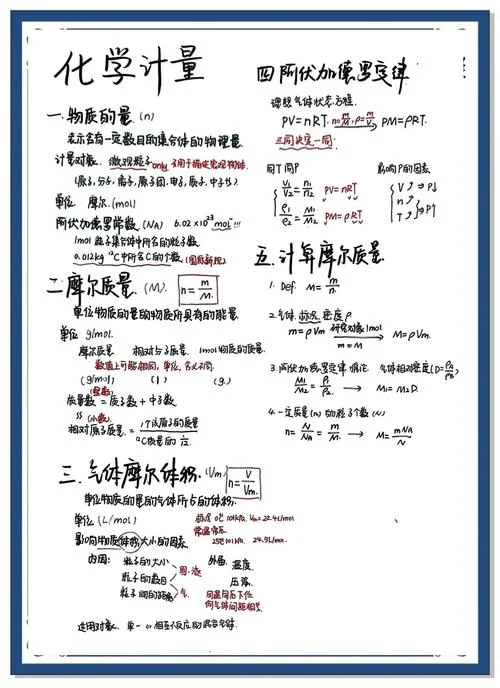 化学计量
一.物质的量.(n)
表示含有一定数目的集合体的物理量
计量对象.微观粒子only 不用于描述宏观物体
(原子,分子,离子,原子团,电子,质子,中子等)
单位 摩尔.(mol)
阿伏加德罗常数(NA) 6.02×10²³ mol⁻¹!!!
1mol粒子集合体中所含的粒子数
0.012kg ¹²C中所含C的个数
二.摩尔质量.(M). n=m/M.
单位物质的量的物质所具有的能量
单位 g/mol.
摩尔质量 相对分子质量. 1mol物质的质量.
数值上可能相同,单位,名义不同.
(g/mol) (1) (g.)
(整数)
质量数=质子数+中子数
(小数)
相对原子质量.=1个该原子的质量/¹²C质量的1/12.
三.气体摩尔体积.(Vm) n=V/Vm.
单位物质的量的气体所占的体积.
单位(L/mol) 标况 0℃ 101kPa. Vm=22.4L/mol
常温常压
影响物质体积大小的因素. 25℃ 101kPa. 24.5L/mol.
内因: 粒子的大小 固,液 外因. 温度.
粒子的数目 压强.
粒子间的距离 气. 同温同压下任
何气体间距相等
适用对象. 单一 or 相互不反应的混合气体.
四 阿伏加德罗定律
理想气体状态方程.
PV=nRT. n=m/M, ρ=m/V PM=ρRT.
三同决定一同.
同T同P 影响P的因素
V₁/V₂=n₁/n₂ PV=nRT V↗→P↓
ρ₁/ρ₂=M₁/M₂ PM=ρRT n↗
T↗ →P↑
五.计算摩尔质量.
1. Def. M=m/n.
2.气体.标况.密度ρ
m=ρVm 研究对象1mol m=M → M=ρVm.
3.阿伏加德罗定律推论 气体相对密度(D=ρ₁/ρ₂)
M₁/M₂=ρ₁/ρ₂. → M₁=M₂D.
4.一定质量(m)的粒子个数(N)
n=N/NA=m/M. → M=mNA/N